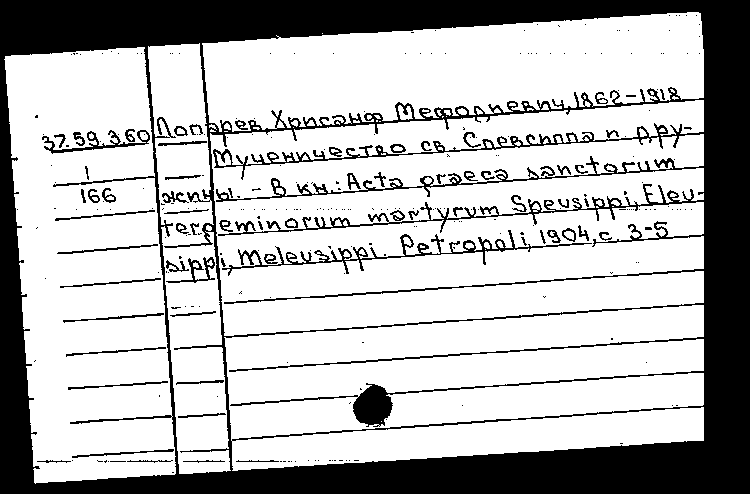 37.59.3.60 Лопарев, Хрисанф Мефодиевич, 1862-1918
1 Мученичество св. Спевсиппа и дру-
166 жины. - В кн.: Acta graeca sanctorum
tergeminorum martyrum Speusippi, Eleu-
sippi, Meleusippi. Petropoli, 1904, с. 3-5